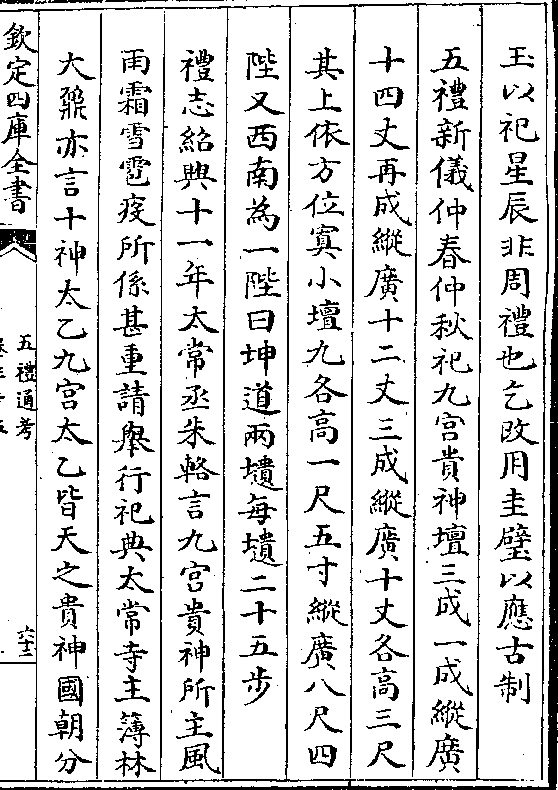 玉以祀星辰非周禮也乞改用圭璧以應古制
五禮新儀仲春仲秋祀九宫貴神壇三成一成縱廣
十四丈再成縱廣十二丈三成縱廣十丈各髙三尺
其上依方位寘小壇九各髙一尺五寸縱廣八尺四
陛又西南為一陛曰坤道兩壝每壝二十五步
禮志紹興十一年太常丞朱輅言九宫貴神所主風
雨霜雪雹疫所係甚重請舉行祀典太常寺主簿林
大鼐亦言十神太乙九宫太乙皆天之貴神國朝分
欽定四庫全書
五禮通考